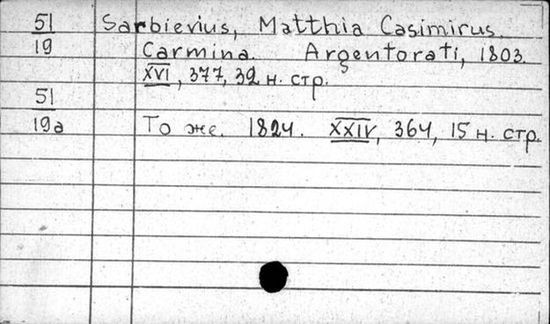 51 Sarbievius, Matthia Casimirus.
19 Carmina. Argentorati, 1803.
XVI, 377, 32 н. стр.
51
19а То же. 1824. XXIV, 364, 15 н. стр.